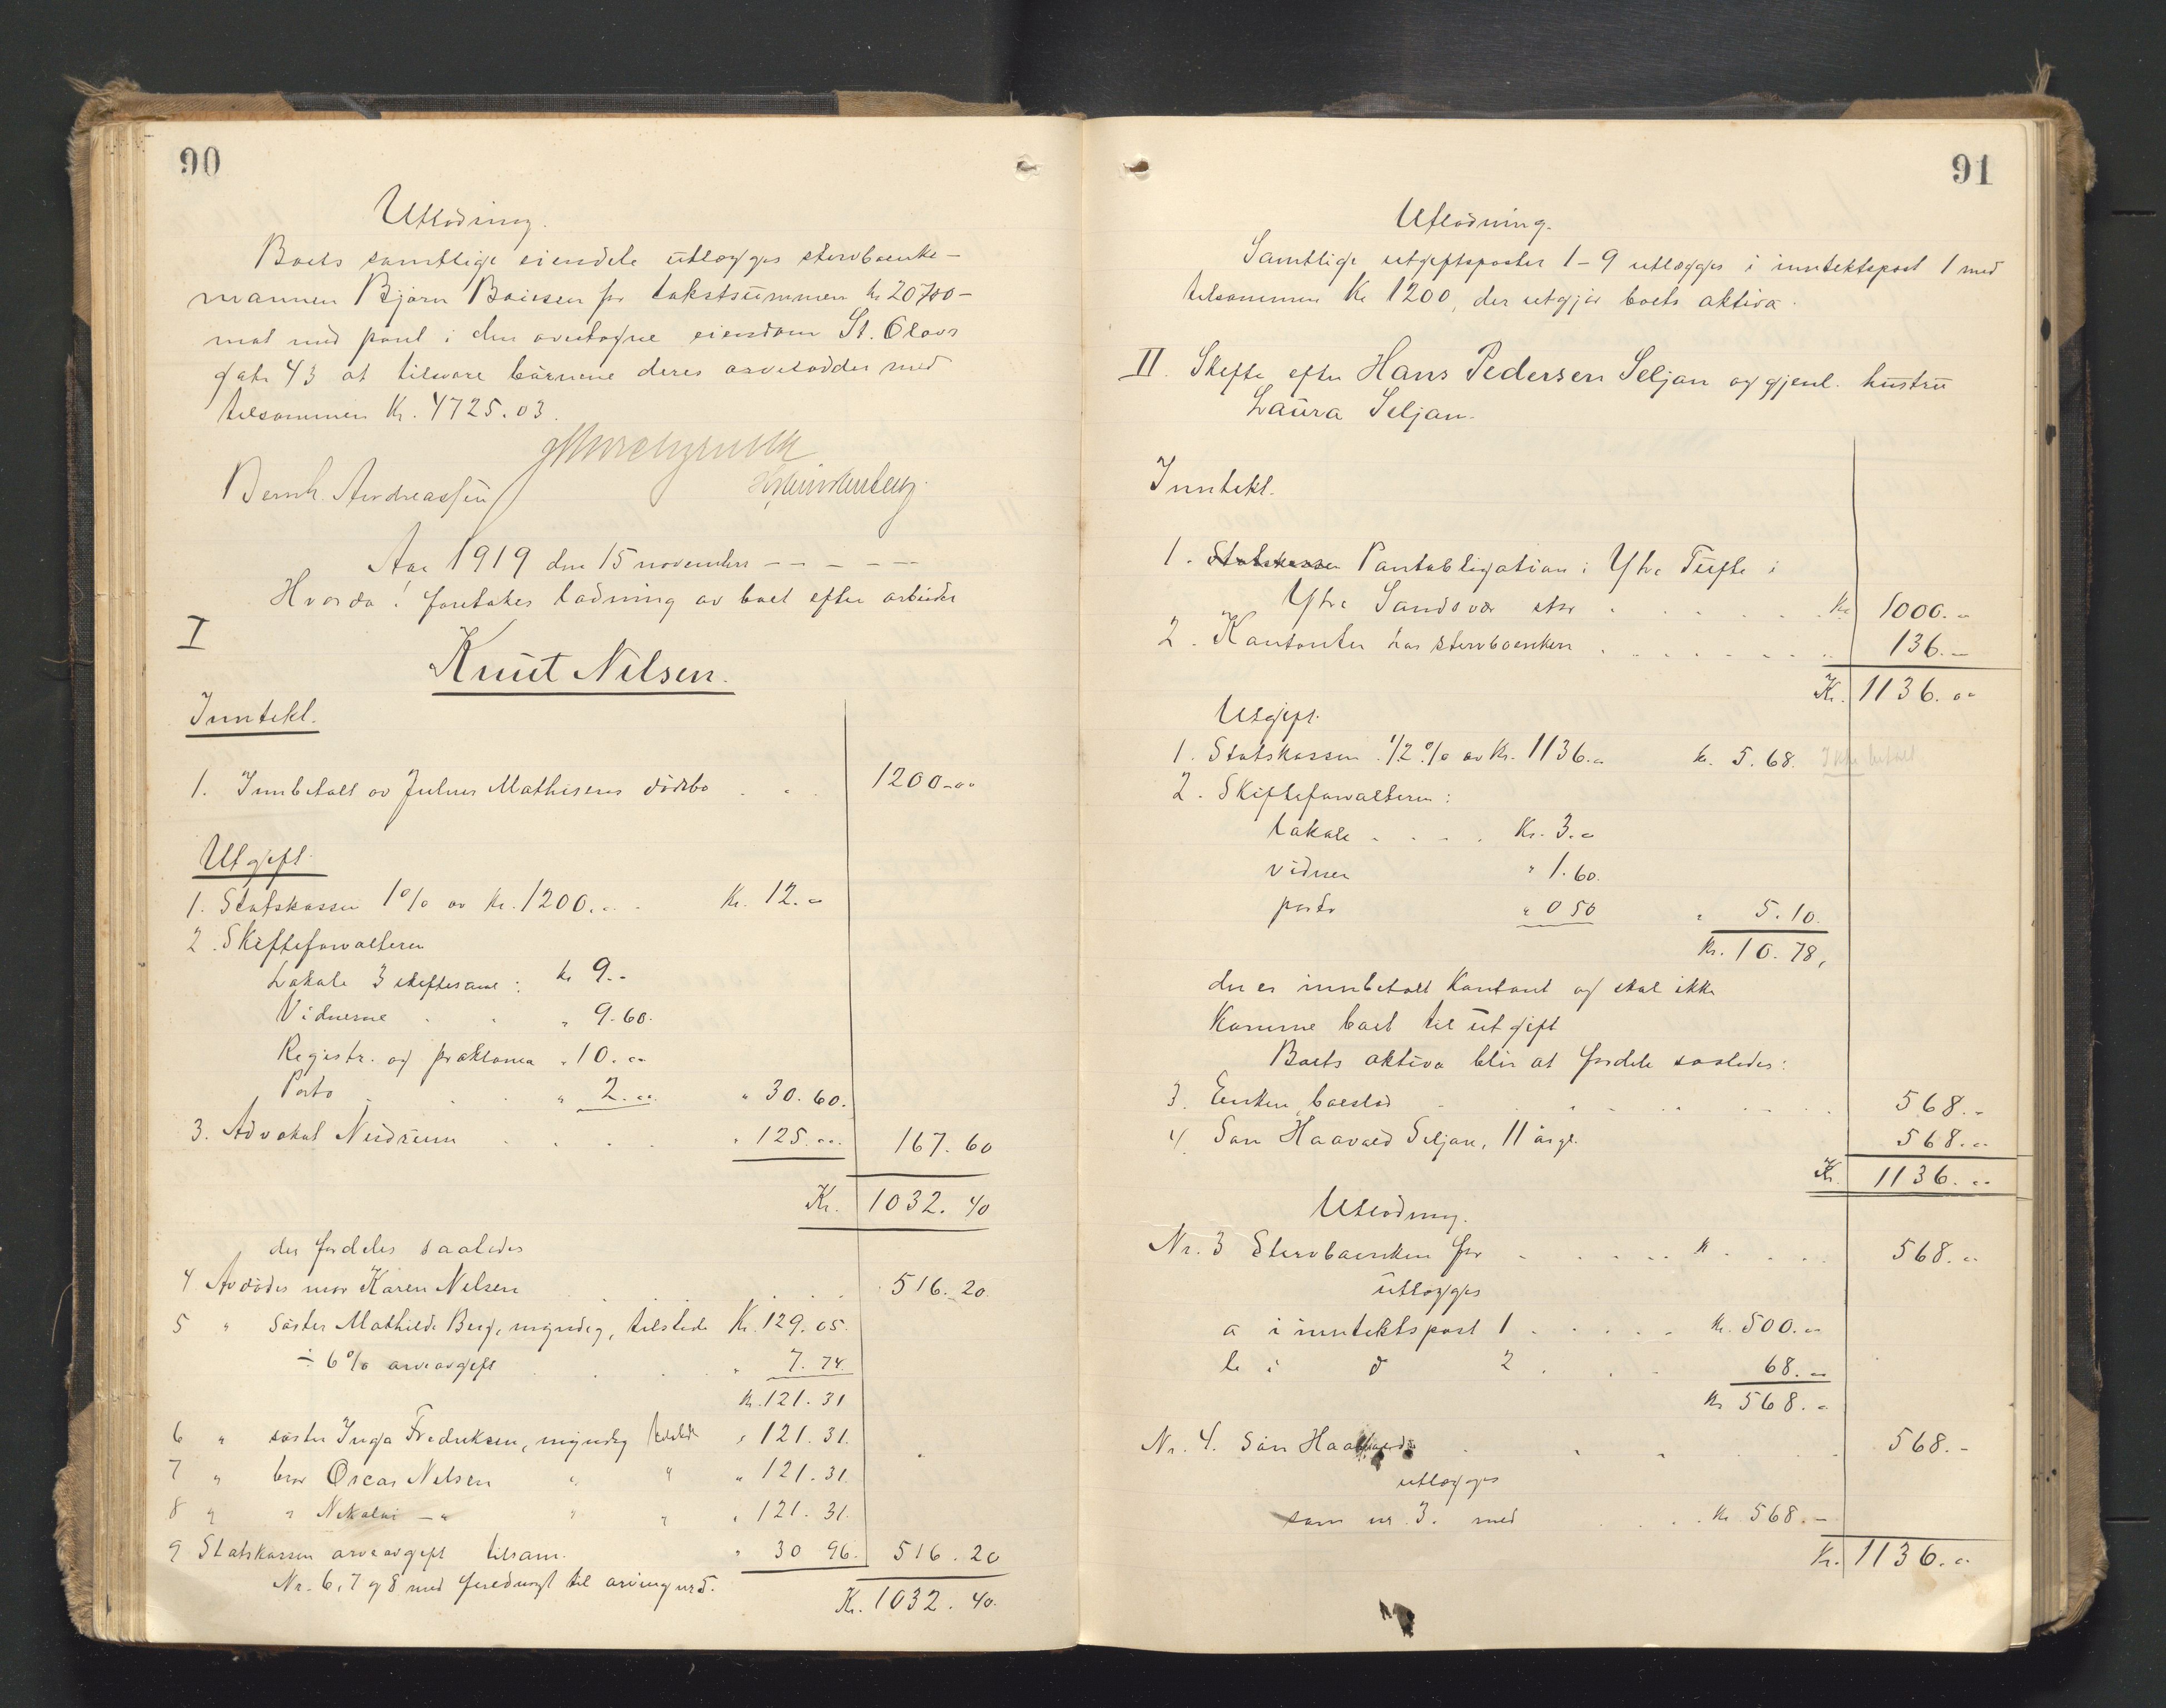 90
Utlodning.
Boets samtlige eiendele utlægges stervboenke-
mannen Bjarn Boiesen for takstsummen kr 20700 -
mot med pant i den overtagne eiendom St. Olavs
gate 43 at tilsvare børnene deres arvelodder med
tilsammen Kr. 4725.03.
Bernh. Andreassen
Aar 1919 den 15 november - - - - -
Hvorda! foretokes lodning av boet efter arbeider
I
Knut Nilsen.
Inntekt.
1. Innbetalt av Julius Mathisens dødsbo . . . 1200.00
Utgift.
1. Statskassen 1% av Kr. 1200.00 Kr. 12.00
2. Skifteforvalteren
Lokale 3 skiftesaml: kr 9.-
Vidnerne . . " 9.60.
Registr. og proklama " 10.00
Porto . . . " 2.00 " 30.60.
3. Advokat Nidrum . . . . " 125.00. 167.60
Kr. 1032.40
der fordeles saaledes
4 Avdødes mor Karen Nilsen . . . . 516.20.
5 " søster Mathilde Berg, myndig, tilstede Kr. 129.05.
÷ 6% arveavgift . . . . " 7.74.
Kr. 121.31
6 " søster Inga Fredriksen, myndig tilstede " 121.31.
7 " bror Oscar Nilsen " " " 121.31.
8 " " Nikolai - " " " " 121.31.
9 Statskassen arveavgift tilsam. " 30 96. 516.20
Nr. 6, 7 og 8 med til arving nr 5.
Kr. 1032.40.
91
Utlodning.
Samtlige utgiftsposter 1-9 utlægges i inntektspost 1 med
tilsammen Kr 1200, der utgjør boets aktiva.
II. Skifte efter Hans Pedersen Seljan og gjenl. hustru
Laura Seljan.
Inntekt.
1. Statskassen Pantobligation i Ytre Tufte i
Ytre Sandsvær stor . . . . . . Kr 1000.00
2. Kontanter hos stervboenken . . . . . . . " 136.-
Kr. 1136.00
Utgift.
1. Statskassen 1/2 % av Kr. 1136.00 kr. 5.68. Ikke betalt
2. Skifteforvalteren:
lokale . . . . Kr. 3.00
vidner " 1.60.
porto " 0 50 " 5.10.
Kr. 10.78,
der er innbetalt kontant og skal ikke
komme boet til utgift
Boets aktiva blir at fordele saaledes:
3. Enken, boeslod . . . . . . . 568.-
4. Søn Haavald Seljan, 11 år gl. 568.00
Kr. 1136.00
Utlodning.
Nr. 3 Stervboenken for . . . . . K . . . 568.00
utlægges
a i inntektspost 1 . . . . . Kr. 500.00
b i d 2 . . . 68.00
Kr 568.00
Nr. 4. Søn Haavald . . . . 568.-
utlægges
som nr. 3. med . . . Kr 568.-
Kr. 1136.00